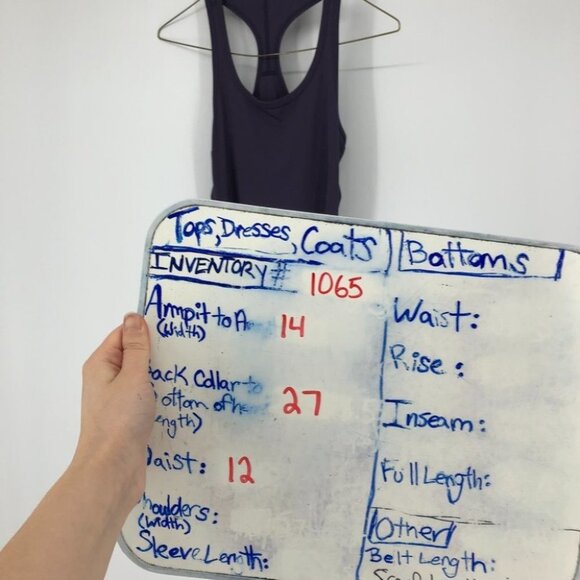 Tops, Dresses, Coats
INVENTORY # 1065
Armpit to A 14
(Width)
Back Collar to
Bottom of he 27
length)
Waist: 12
Shoulders:
(Width)
Sleeve Length:
Bottoms
Waist:
Rise:
Inseam:
Full Length:
Other
Belt Length: